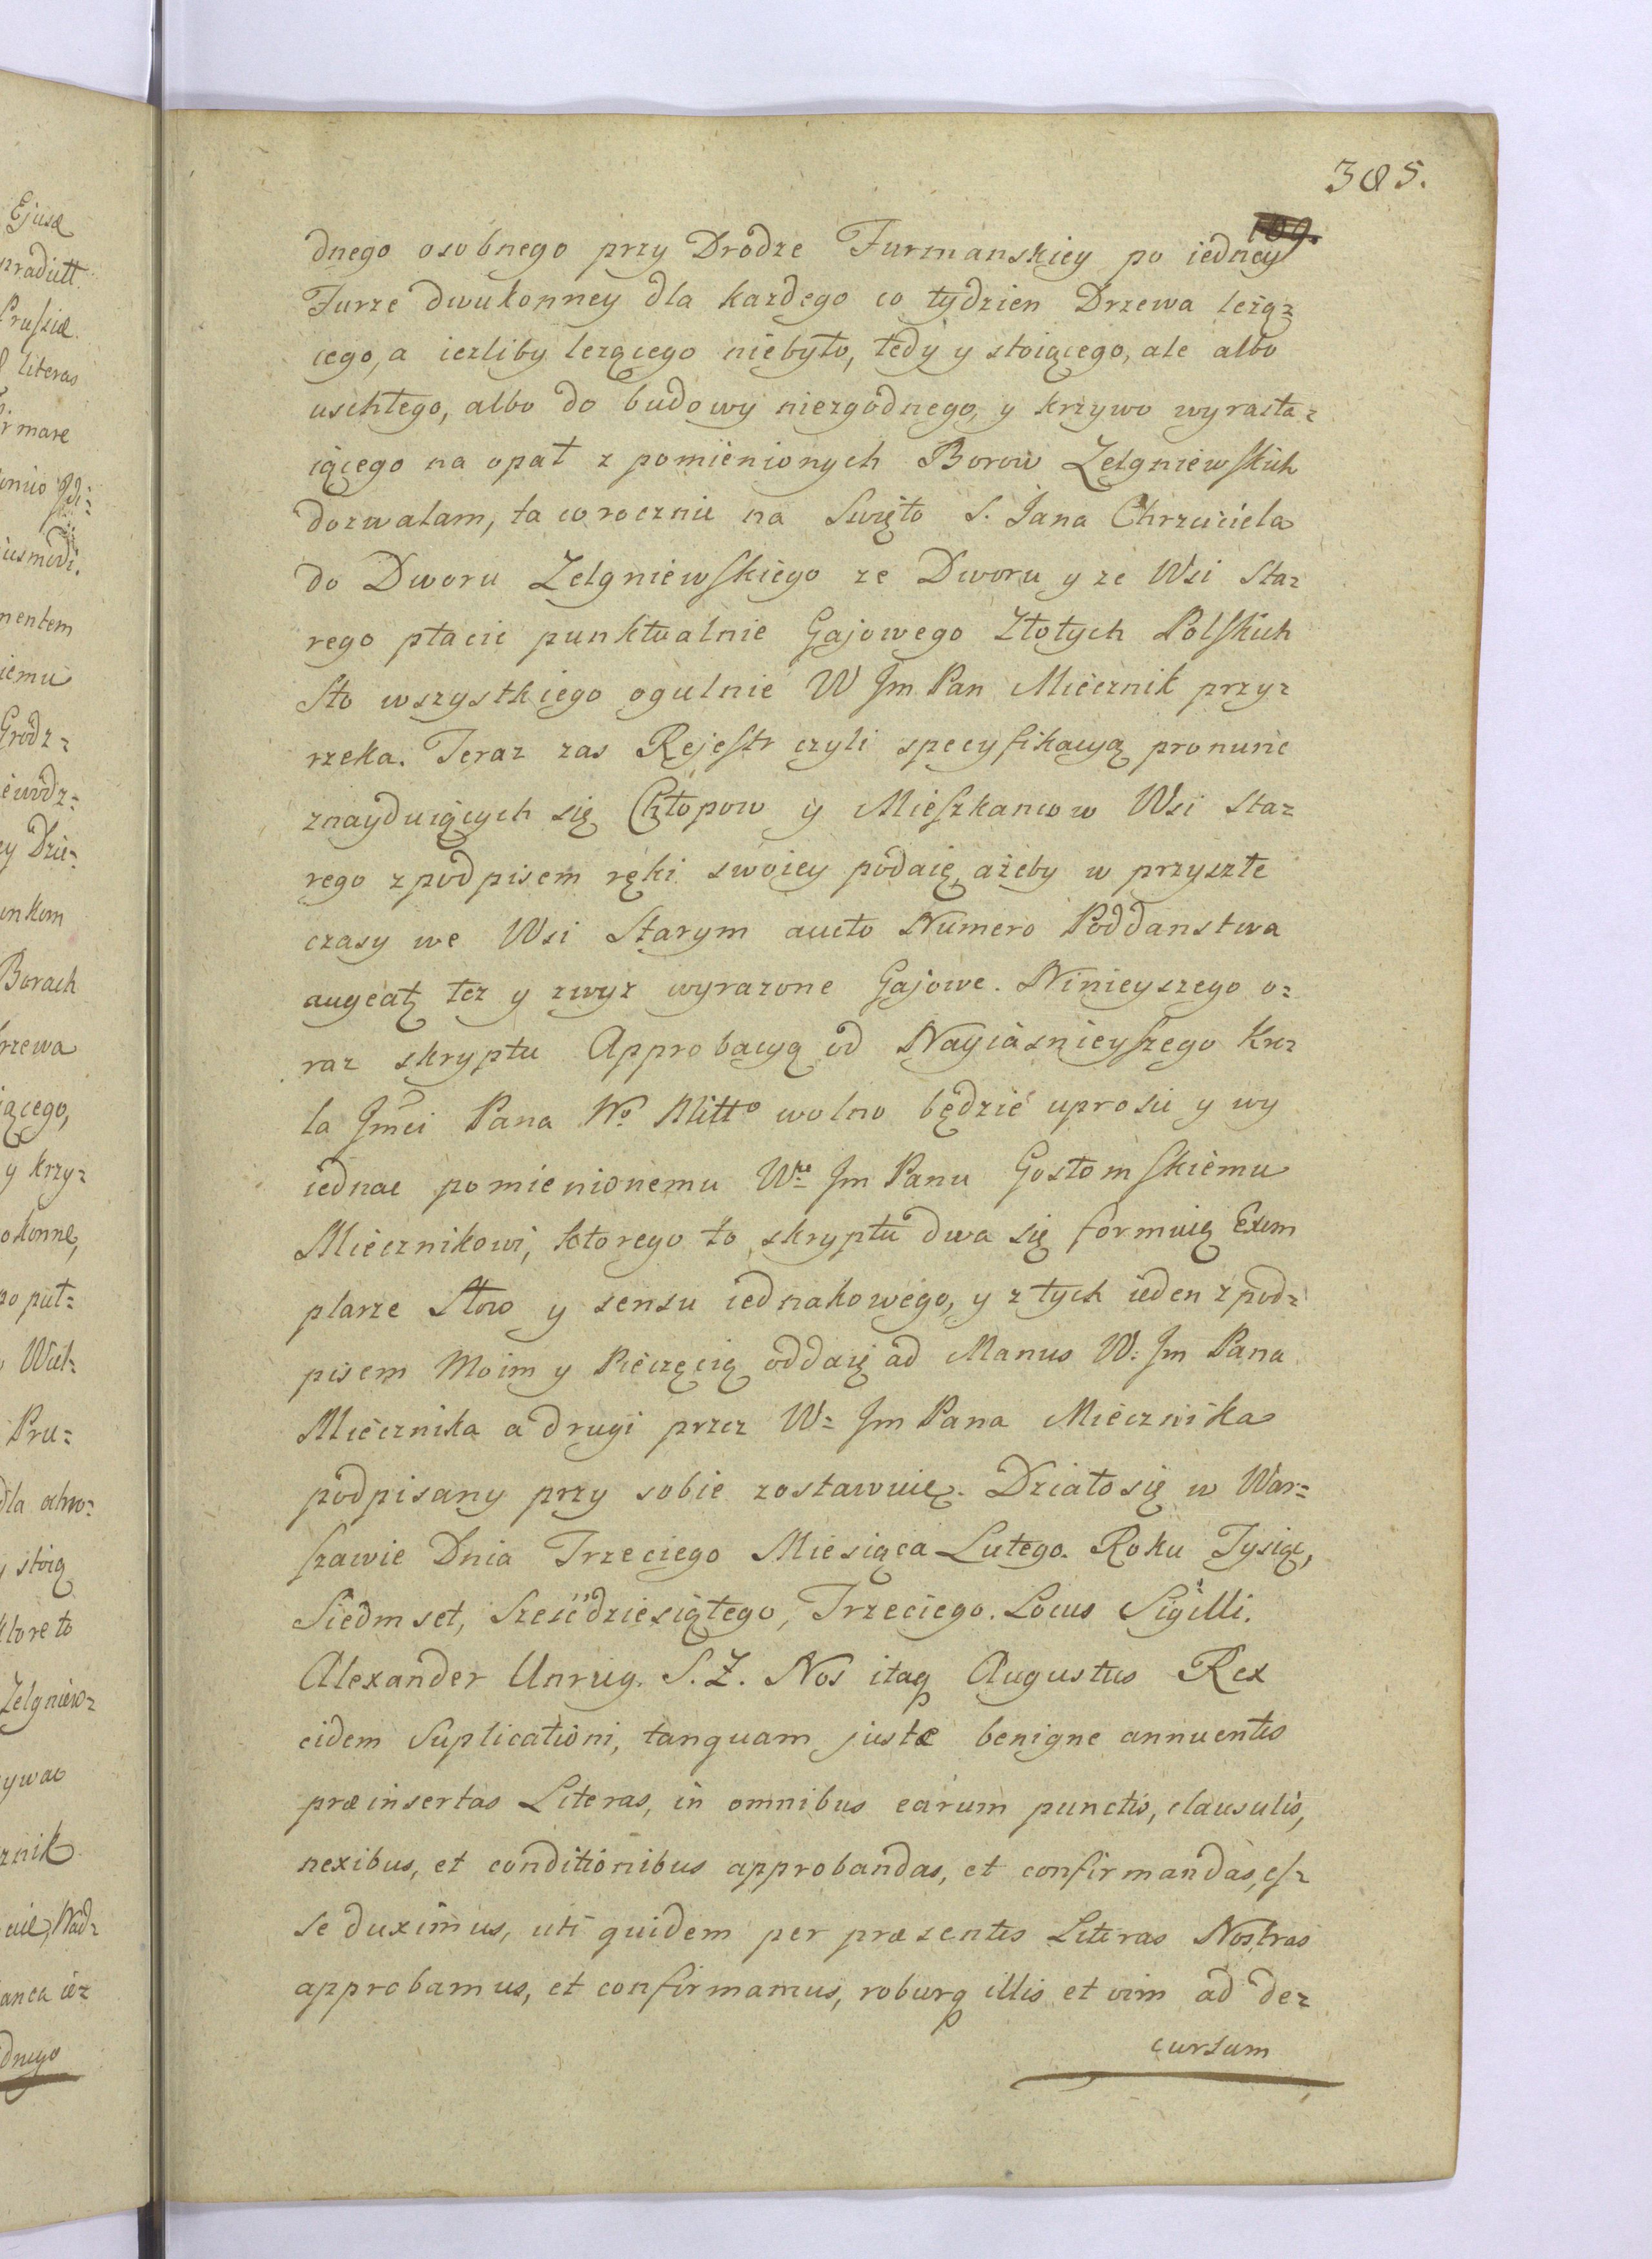 385.
109.
dnego osobnego przy Drodze Furmanskiey po iedney
Furze dwukonney dla kazdego co tydzien Drzewa leżą=
cego, a iezliby lezącego niebyło, tedy y stoiącego, ale albo
uschłego, albo do budowy niezgodnego, y krzywo wyrasta=
iącego na opał z pomienionych Borow Zelgniewskich
dozwalam, ta corocznie na Swięto S. Jana Chrzciciela
do Dworu Zelgniewskiego ze Dworu y ze Wsi Sta=
rego płacic punktualnie Gajowego Złotych Polskich
Sto wszystkiego ogulnie W Jm Pan Miecznik przy=
rzeka. Teraz zas Rejestr czyli specyfikacyą pro nunc
znayduiących się Chłopow y Mieszkancow Wsi Sta=
rego z podpisem ręki swoiey podaię, ażeby w przyszłe
czasy we Wsi Starym aucto Numero Poddanstwa
augeat tez y zwyz wyrazone Gajowe. Ninieyszego o=
raz skryptu Approbacyą od Nayiasnieyszego Kro=
la Jmci Pana Nº Mittº wolno będzie uprosic y wy
iednac pomienionemu Wmu Jm Panu Gostomskiemu
Miecznikowi, ktorego to skryptu dwa się formuią Exem
plarze Słow y sensu iednakowego, y z tych ieden z pod=
pisem Moim y Pieczęcią oddaię ad Manus W: Jm Pana
Miecznika a drugi przez W= Jm Pana Miecznika
podpisany przy sobie zostawuię. Działo się w War=
szawie Dnia Trzeciego Miesiąca Lutego. Roku Tysiąc,
Siedmset, Sześćdziesiątego, Trzeciego. Locus Sigilli.
Alexander Unrug. S. Z. Nos itaq Augustus Rex
eidem Suplicationi, tanquam justæ benigne annuentes
præinsertas Literas, in omnibus earum punctis, clausulis,
nexibus, et conditionibus approbandas, et confirmandas, es=
se duximus, uti quidem per præsentes Literas Nostras
approbamus, et confirmamus, roburq illis et vim ad de=
cursum